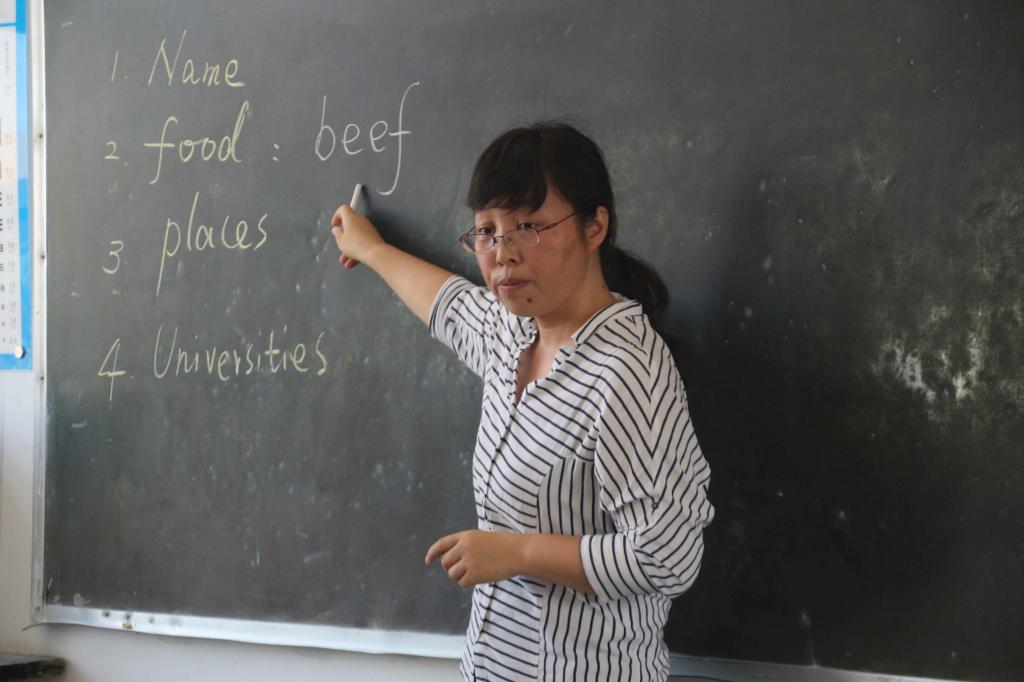 1. Name
2. food : beef
3 places
4. Universities